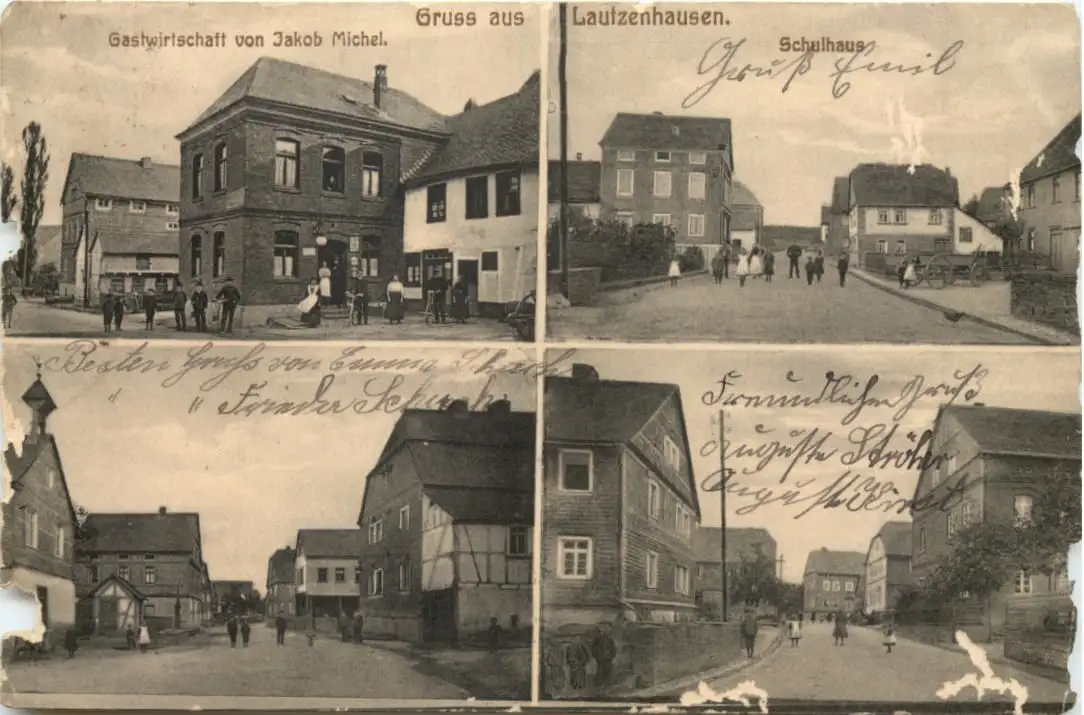 Gruss aus Lautzenhausen.
Gastwirtschaft von Jakob Michel.
Schulhaus
Gruß Emil
Besten Gruß von Emma
" " Frieder
Freundlichen Gruß
Auguste Ströher
August